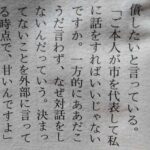 償したいと言っている。
「ご本人が市を代表して私
に話をすればいいじゃない
ですか。一方的にああだこ
うだ言わず、なぜ対話をし
ないんだっていう。決まっ
てないことを外部に言って
る時点で、甘いんですよ」